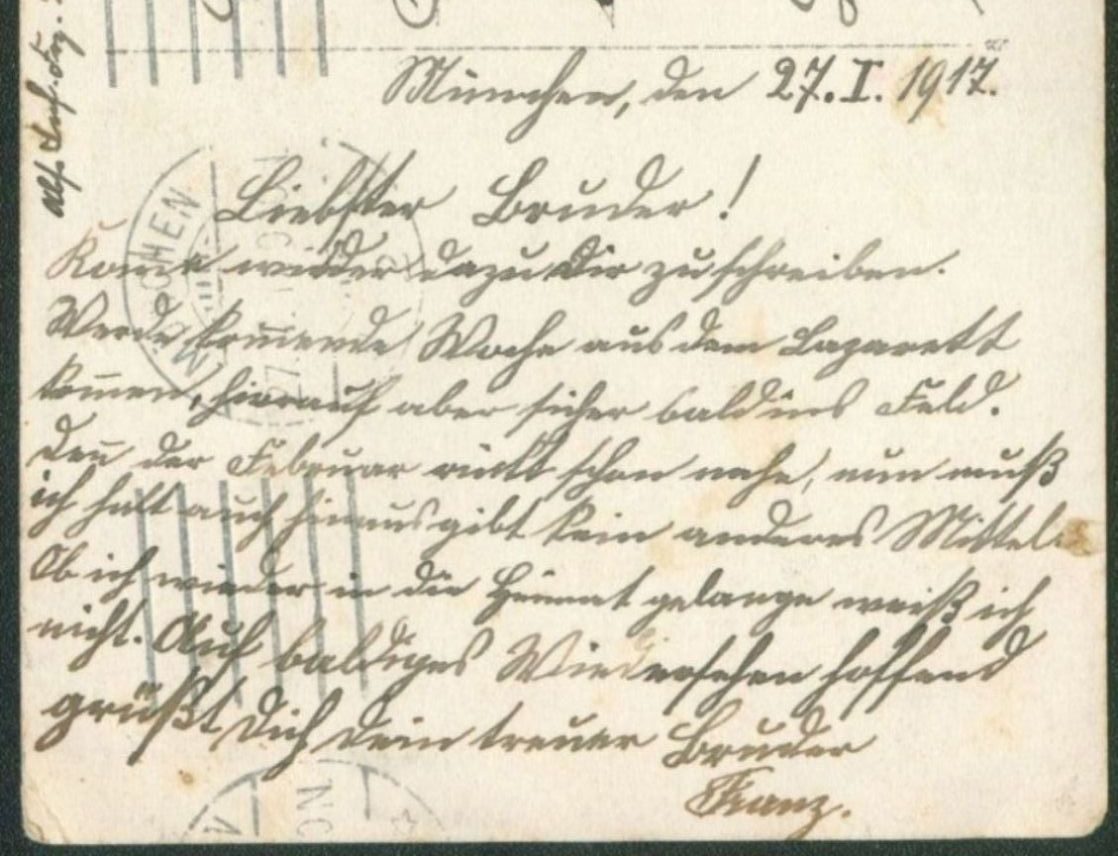 München, den 27. I. 1917.
Liebster Bruder!
Kom̄e wieder dazu Dir zu schreiben.
Werde kom̄ende Woche aus dem Lazarett
kom̄en, hierauf aber sicher bald ins Feld.
Den̄ der Februar rückt schon nahe, nun muß
ich halt auch hinaus gibt kein anderes Mittel.
Ob ich wieder in die Heimat gelange weiß ich
nicht. Auf baldiges Wiedersehen hoffend
grüßt Dich Dein treuer Bruder
Franz.